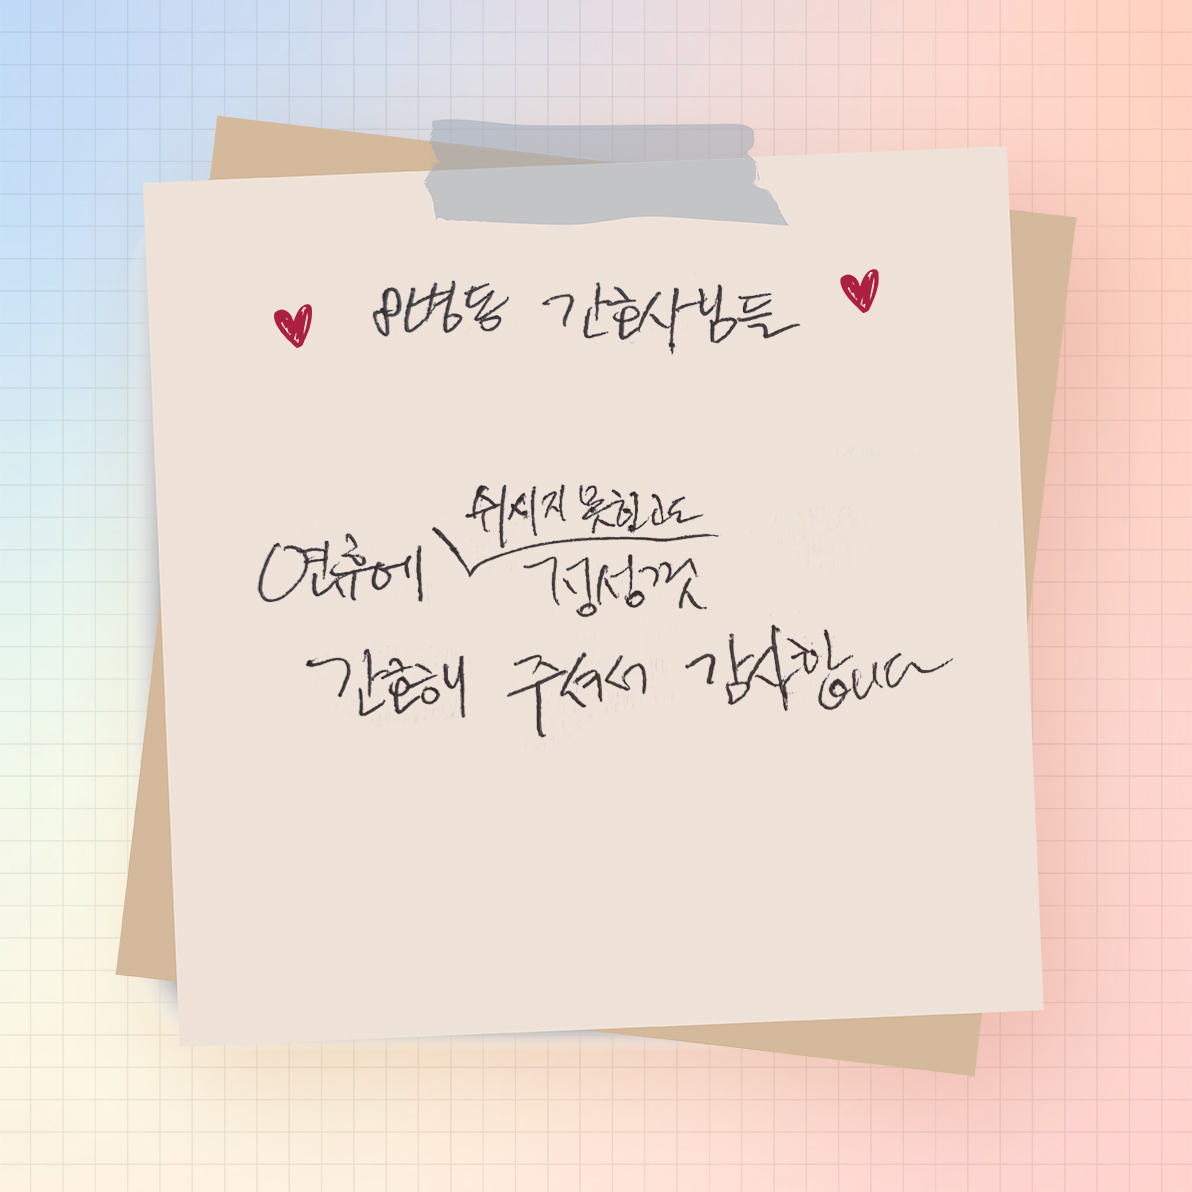 8병동 간호사님들
연휴에 쉬시지 못하고도 정성껏
간호해 주셔서 감사합니다